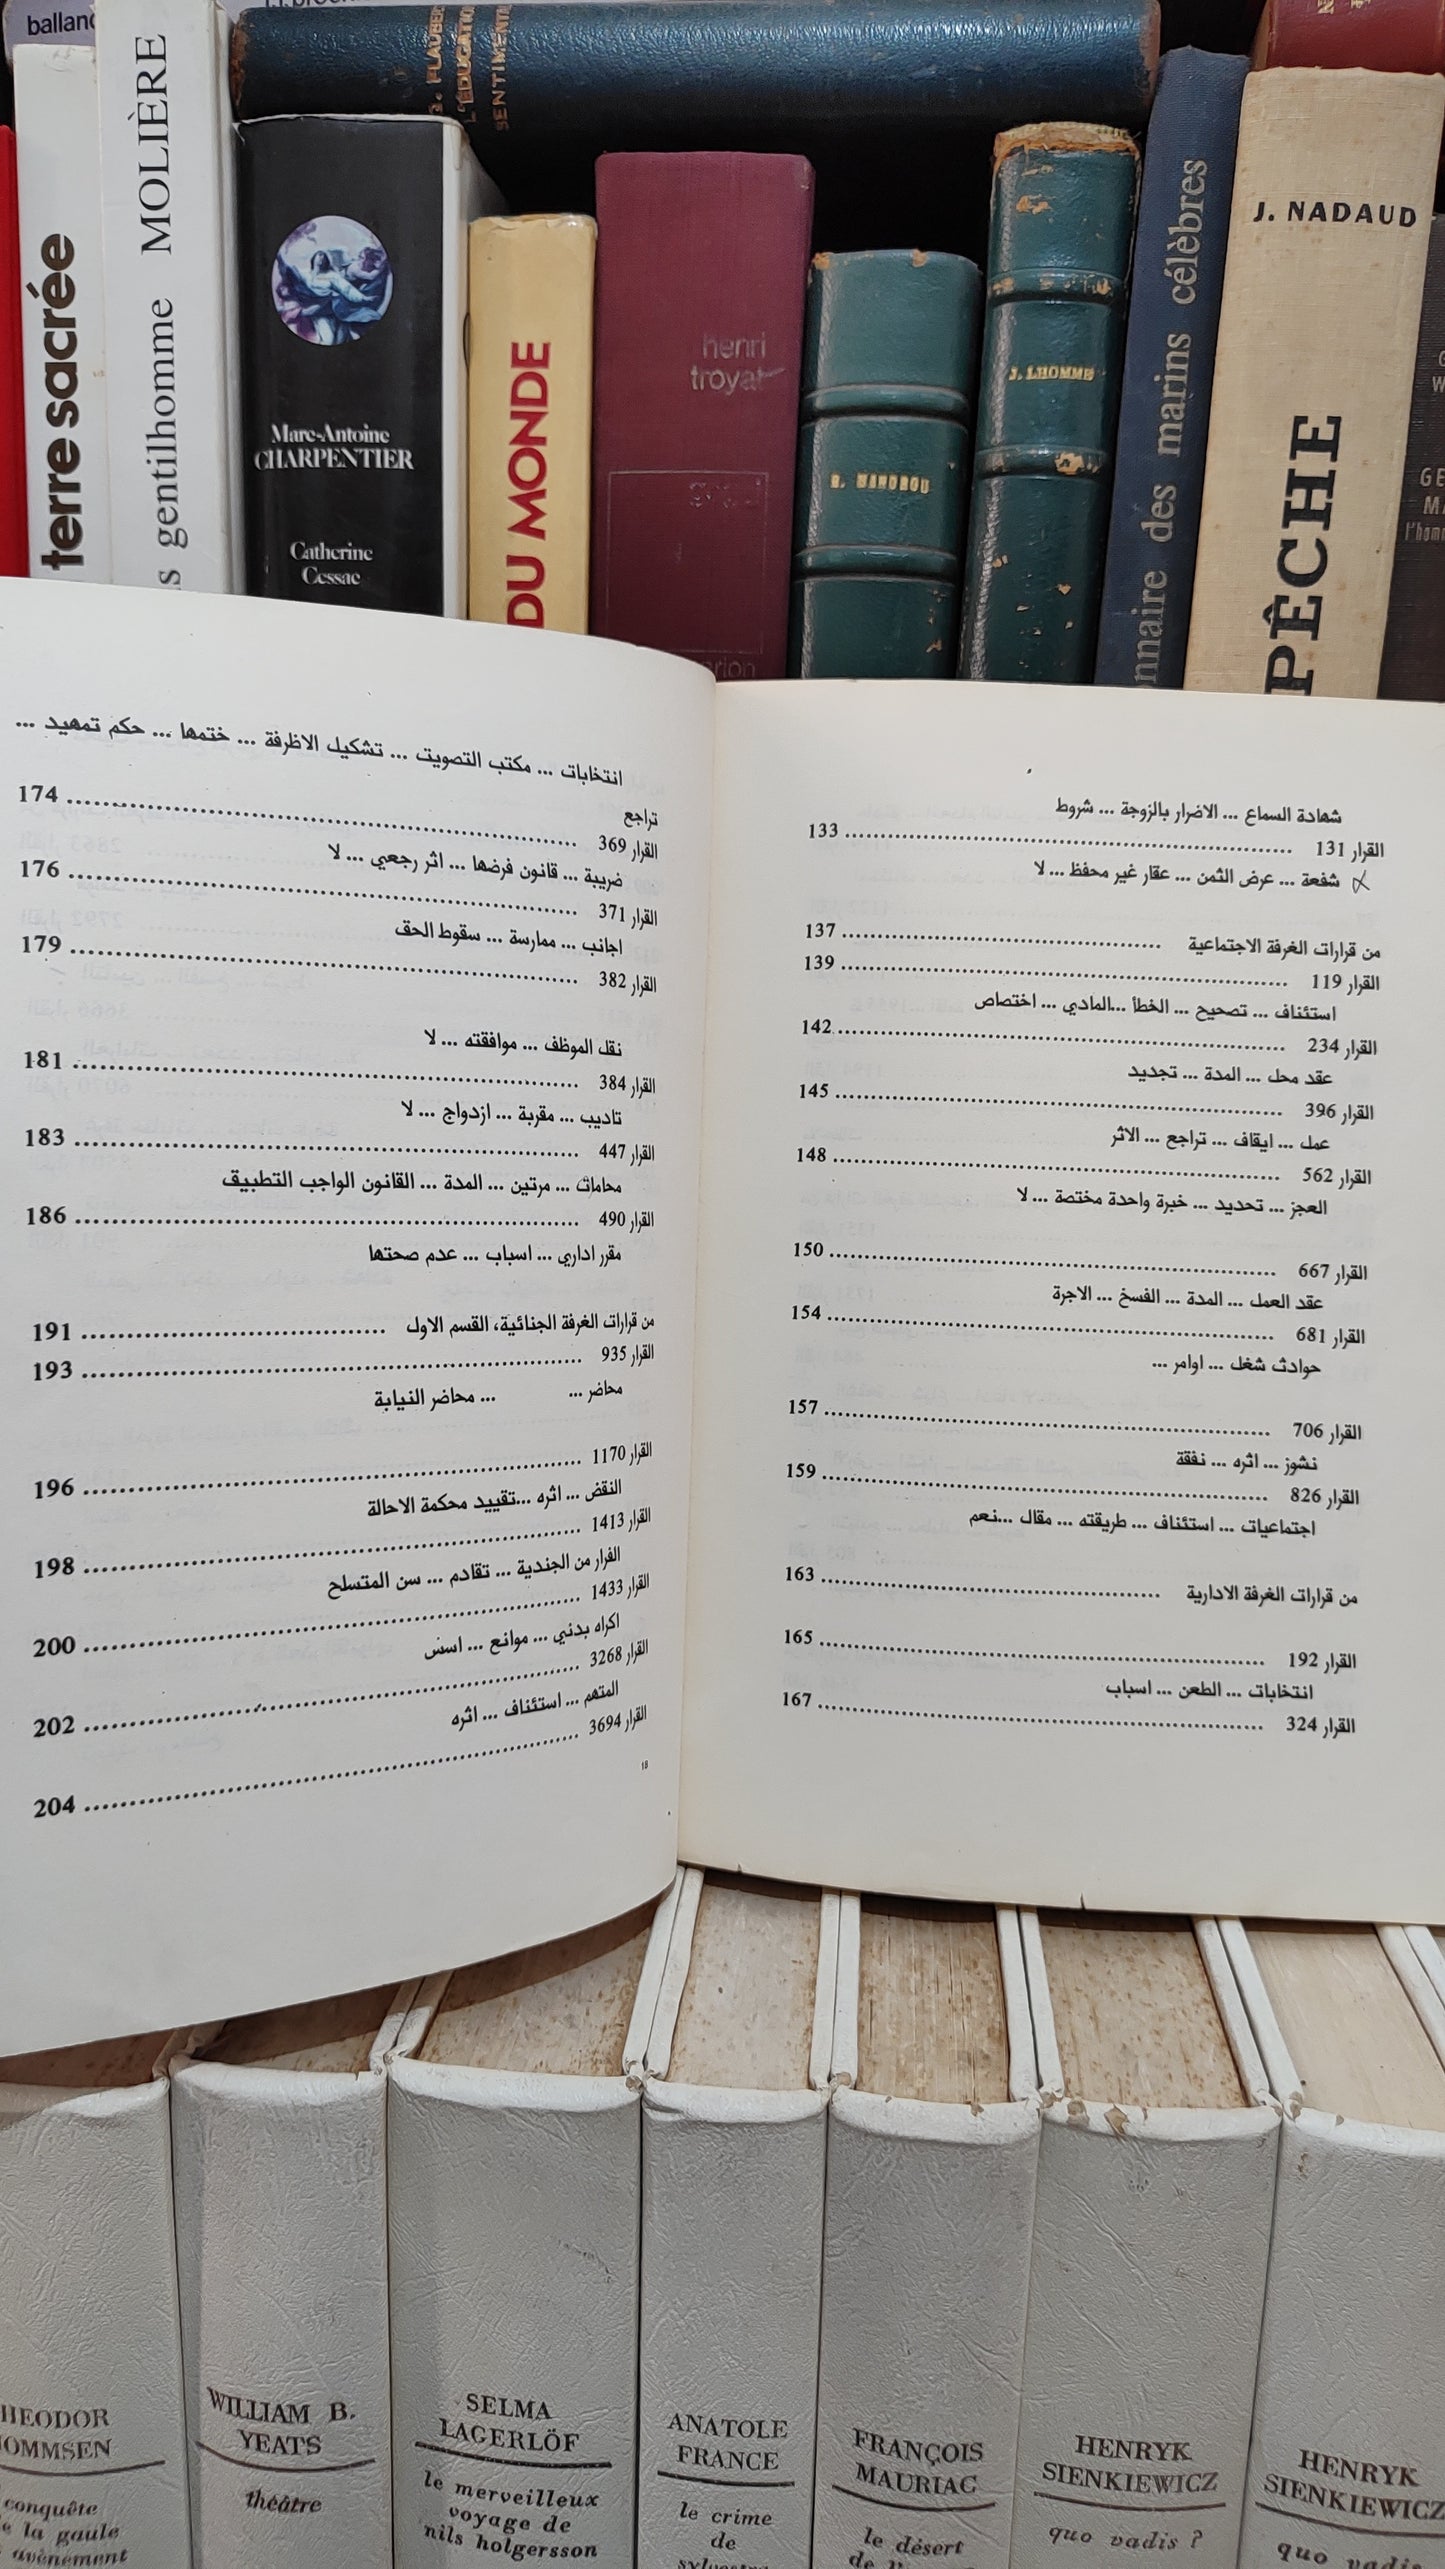 balland
terre sacrée
s gentilhomme MOLIÈRE
G. FLAUBERT
L'ÉDUCATION
SENTIMENTALE
Marc-Antoine
CHARPENTIER
Catherine
Cessac
DU MONDE
henri
troyat
J. LHOMME
onnaire des marins célèbres
J. NADAUD
PÊCHE
شهادة السماع ... الاضرار بالزوجة ... شروط
القرار 131 133
شفعة ... عرض الثمن ... عقار غير محفظ ... لا
من قرارات الغرفة الاجتماعية 137
القرار 119 139
استئناف ... تصحيح ... الخطأ ...المادي ... اختصاص
القرار 234 142
عقد محل ... المدة ... تجديد
القرار 396 145
عمل ... ايقاف ... تراجع ... الاثر
القرار 562 148
العجز ... تحديد ... خبرة واحدة مختصة ... لا
القرار 667 150
عقد العمل ... المدة ... الفسخ ... الاجرة
القرار 681 154
حوادث شغل ... اوامر ...
القرار 706 157
نشوز ... اثره ... نفقة
القرار 826 159
اجتماعيات ... استئناف ... طريقته ... مقال ...نعم
من قرارات الغرفة الادارية 163
القرار 192 165
انتخابات ... الطعن ... اسباب
القرار 324 167
انتخابات ... مكتب التصويت ... تشكيل الاظرفة ... ختمها ... حكم تمهيد ...
تراجع
القرار 369 174
ضريبة ... قانون فرضها ... اثر رجعي ... لا
القرار 371 176
اجانب ... ممارسة ... سقوط الحق
القرار 382 179
نقل الموظف ... موافقته ... لا
القرار 384 181
تاديب ... مقربة ... ازدواج ... لا
القرار 447 183
محامات ... مرتين ... المدة ... القانون الواجب التطبيق
القرار 490 186
مقرر اداري ... اسباب ... عدم صحتها
من قرارات الغرفة الجنائية، القسم الاول 191
القرار 935 193
محاضر ... ... محاضر النيابة
القرار 1170 196
النقض ... اثره ...تقييد محكمة الاحالة
القرار 1413 198
الفرار من الجندية ... تقادم ... سن المتسلح
القرار 1433 200
اكراه بدني ... موانع ... اسس
القرار 3268 202
المتهم ... استئناف ... اثره
القرار 3694 204
18
HEODOR
OMMSEN
conquête
e la gaule
avènement
WILLIAM B.
YEATS
théâtre
SELMA
LAGERLÖF
le merveilleux
voyage de
nils holgersson
ANATOLE
FRANCE
le crime
de
FRANÇOIS
MAURIAC
le désert
HENRYK
SIENKIEWICZ
quo vadis ?
HENRYK
SIENKIEWICZ
quo vadis